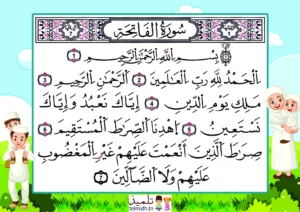 سُورَةُ الفَاتِحَةِ
بِسْمِ اللَّهِ الرَّحْمَٰنِ الرَّحِيمِ ١
الْحَمْدُ لِلَّهِ رَبِّ الْعَالَمِينَ ٢ الرَّحْمَٰنِ الرَّحِيمِ ٣
مَلِكِ يَوْمِ الدِّينِ ٤ إِيَّاكَ نَعْبُدُ وَإِيَّاكَ
نَسْتَعِينُ ٥ اهْدِنَا الصِّرَاطَ الْمُسْتَقِيمَ ٦
صِرَاطَ الَّذِينَ أَنْعَمْتَ عَلَيْهِمْ غَيْرِ الْمَغْضُوبِ
عَلَيْهِمْ وَلَا الضَّالِّينَ ٧
تلميذ
telmidh.tn